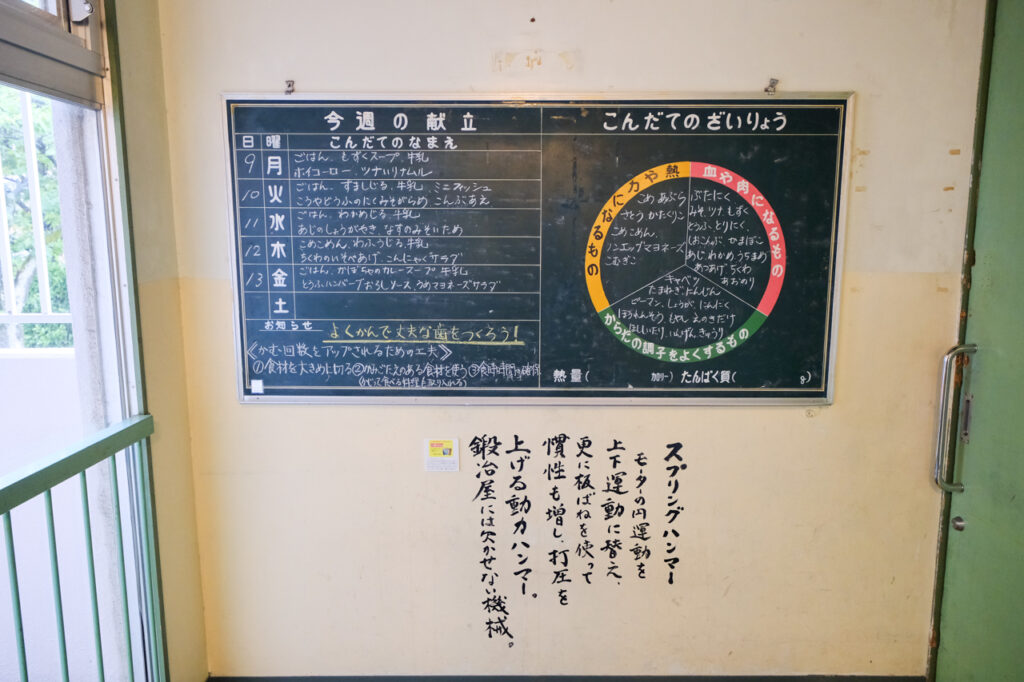 今週の献立
日 曜 こんだてのなまえ
9 月 ごはん、もずくスープ、牛乳
ホイコーロー、ツナいりナムル
10 火 ごはん、すましじる、牛乳、ミニフィッシュ
こうやどうふのにくみそがらめ こんぶあえ
11 水 ごはん、わかめじる、牛乳
あじのしょうがやき、なすのみそいため
12 木 こめこめん、わふうじる、牛乳
ちくわのいそべあげ、こんにゃくサラダ
13 金 ごはん、かぼちゃのカレースープ 牛乳
とうふハンバーグおろしソース、うめマヨネーズサラダ
土
お知らせ よくかんで丈夫な歯をつくろう!
《かむ回数をアップされるための工夫》
①食材を大きめに切る②かみごたえのある食材を使う③食事時間の確保
こんだてのざいりょう
熱や力になるもの
こめ あぶら
さとう かたくりこ
こめこめん、
ノンエッグマヨネーズ
こむぎこ
血や肉になるもの
ぶたにく
みそ、ツナ、もずく
とうふ、とりにく、
しおこんぶ、かまぼこ
あじ、わかめ、うちまめ
あつあげ、ちくわ
あおのり
からだの調子をよくするもの
キャベツ
たまねぎ、にんじん
ピーマン、しょうが、にんにく
ほうれんそう もやし えのきだけ
ほししいたけ いんげん、きゅうり
熱量( カロリー) たんぱく質( g)
スプリングハンマー
モーターの円運動を
上下運動に替え、
更に板ばねを使って
慣性も増し、打圧を
上げる動力ハンマー。
鍛冶屋には欠かせない機械。